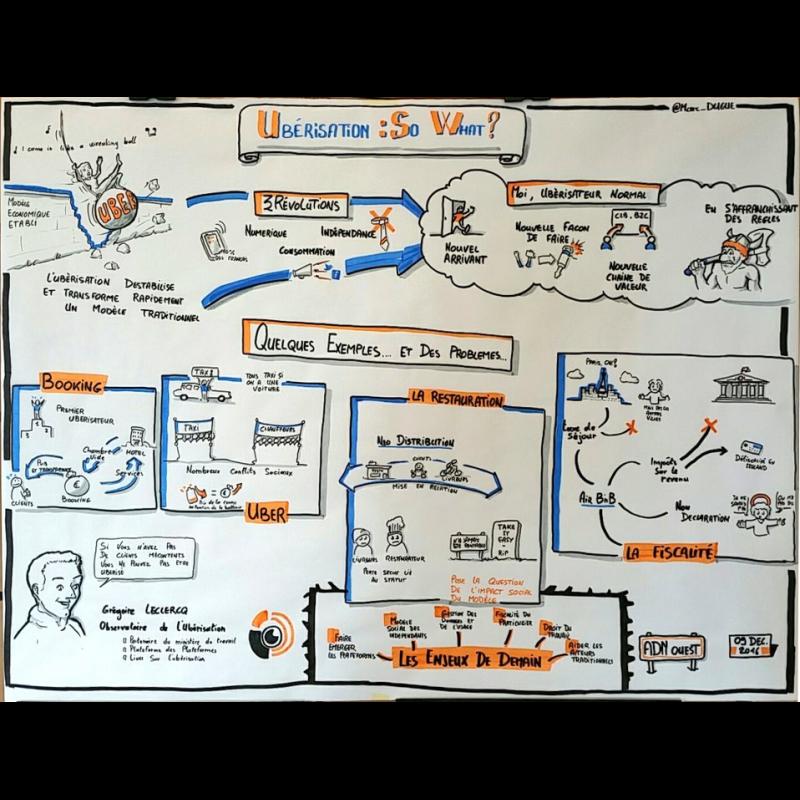 @Marc_DUGUE
UBÉRISATION : SO WHAT ?
I came in like a wrecking ball
UBER
MODÈLE
ÉCONOMIQUE
ÉTABLI
L'UBÉRISATION DESTABILISE
ET TRANSFORME RAPIDEMENT
UN MODÈLE TRADITIONNEL
3 RÉVOLUTIONS
NUMÉRIQUE
INDÉPENDANCE
CONSOMMATION
DES FRANÇAIS
MOI, UBÉRISATEUR NORMAL
NOUVEL
ARRIVANT
NOUVELLE FAÇON
DE FAIRE
C2B, B2C
NOUVELLE
CHAÎNE DE
VALEUR
EN S'AFFRANCHISSANT
DES RÈGLES
QUELQUES EXEMPLES... ET DES PROBLÈMES...
BOOKING
PREMIER
UBÉRISATEUR
Chambre
Vide
HOTEL
Services
BOOKING
CLIENTS
TAXI
TOUS TAXI SI
ON A UNE
VOITURE
TAXI
CHAUFFEURS
Nombreux Conflits Sociaux
UBER
LA RESTAURATION
NEO DISTRIBUTION
CLIENTS
LIVREURS
MISE EN RELATION
LIVREURS
RESTAURATEUR
PORTE SECOUR LIÉ
AU STATUT
TAKE IT
EASY
RIP
POSE LA QUESTION
DE L'IMPACT SOCIAL
DU MODÈLE
PARIS OK?
MAIS PAS LES
AUTRES
VILLES
Taxe de
Séjour
Impôts
Sur le
revenu
AIR BnB
NON
DECLARATION
LA FISCALITÉ
SI VOUS N'AVEZ PAS
DE CLIENTS MÉCONTENTS
VOUS NE POUVEZ PAS ETRE
UBÉRISÉ
Grégoire LECLERCQ
Observatoire de l'Ubérisation
Partenaire du ministère du travail
Plateforme des Plateformes
Livre Sur l'ubérisation
FAIRE
EMERGER
LES PLATEFORMES
MODÈLE
SOCIAL DES
INDÉPENDANTS
GESTION DES
DONNÉES ET
DE L'USAGE
FISCALITÉ DU
PARTICULIER
DROIT DU
TRAVAIL
AIDER LES
ACTEURS
TRADITIONNELS
LES ENJEUX DE DEMAIN
ADN OUEST
09 DEC.
2016